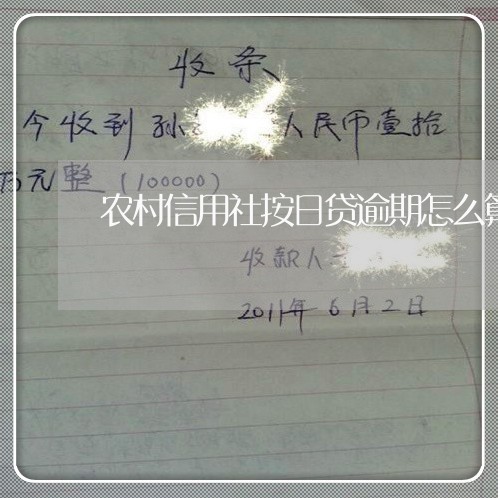 收条
今收到孙 人民币壹拾
万元整（100000）
农村信用社按日贷逾期怎么算
收款人
2011年6月2日